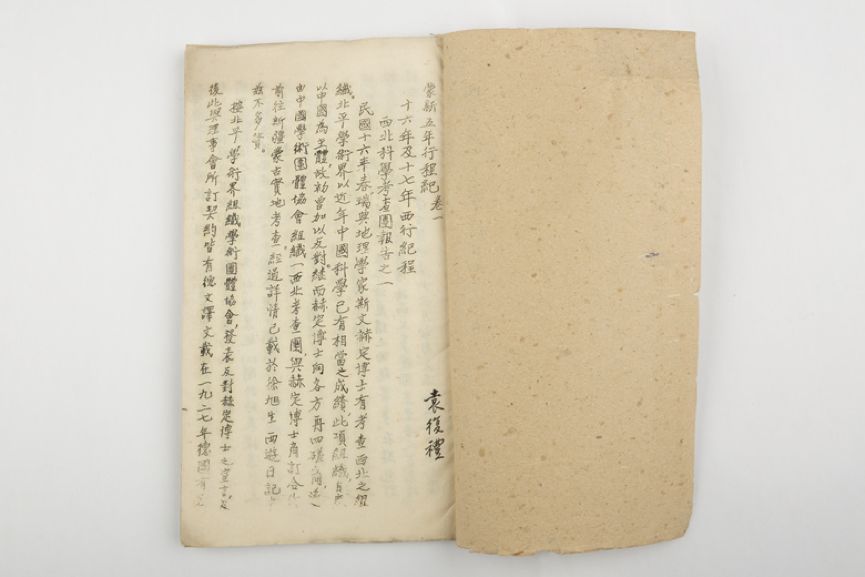 蒙新五年行程紀 卷一
十六年及十七年西行紀程
袁復禮
西北科學考查團報告之一
民國十六年春,瑞典地理學家斯文赫定博士有考查西北之組
織。北平學術界以近年中國科學已有相當之成績,此項組織自應
以中國為主體,故初曾加以反對。繼而赫定博士向各方再四磋商,
由中國學術團體協會組織一西北考查團,與赫定博士商訂合
前往新疆蒙古實地考查。經過詳情已載於徐旭生西遊日記
茲不多贅。
按北平學術界組織學術團體協會,發表反對赫定博士之宣言,
後此與理事會所訂契約皆有德文譯文載在一九二七年德國